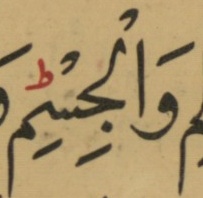 وَالْجِسْمِ ط